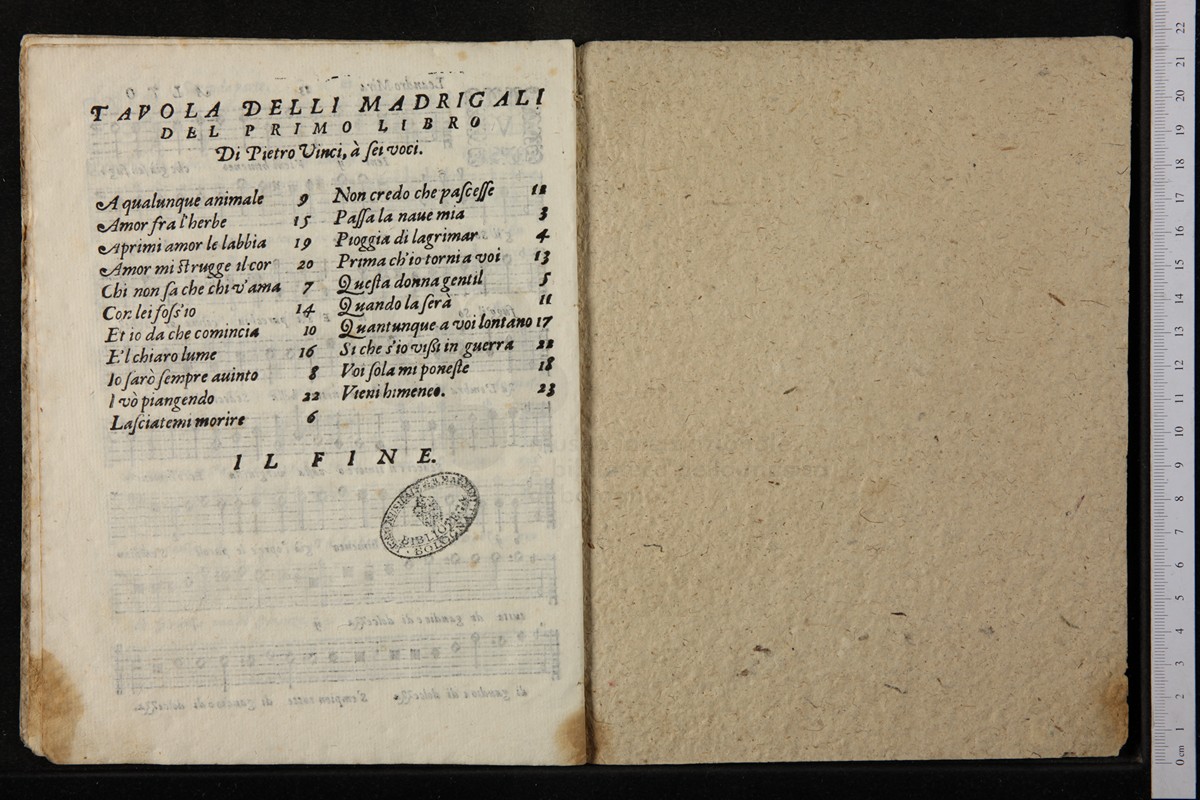 TAVOLA DELLI MADRIGALI
DEL PRIMO LIBRO
Di Pietro Vinci, à ſei voci.
A qualunque animale 9
Amor fra l'herbe 15
Aprimi amor le labbia 19
Amor mi ſtrugge il cor 20
Chi non ſa che chi v'ama 7
Con lei foſs'io 14
Et io da che comincia 10
E'l chiaro lume 16
Io ſarò ſempre auinto 8
I vò piangendo 22
Laſciatemi morire 6
Non credo che paſceſſe 12
Paſſa la naue mia 3
Pioggia di lagrimar 4
Prima ch'io torni a voi 13
Queſta donna gentil 5
Quando la ſerà 11
Quantunque a voi lontano 17
Si che s'io viſſi in guerra 22
Voi ſola mi poneſte 18
Vieni himeneo. 23
IL FINE.
BIBLIOTECA
BOLOGNA
0 cm 1 2 3 4 5 6 7 8 9 10 11 12 13 14 15 16 17 18 19 20 21 22